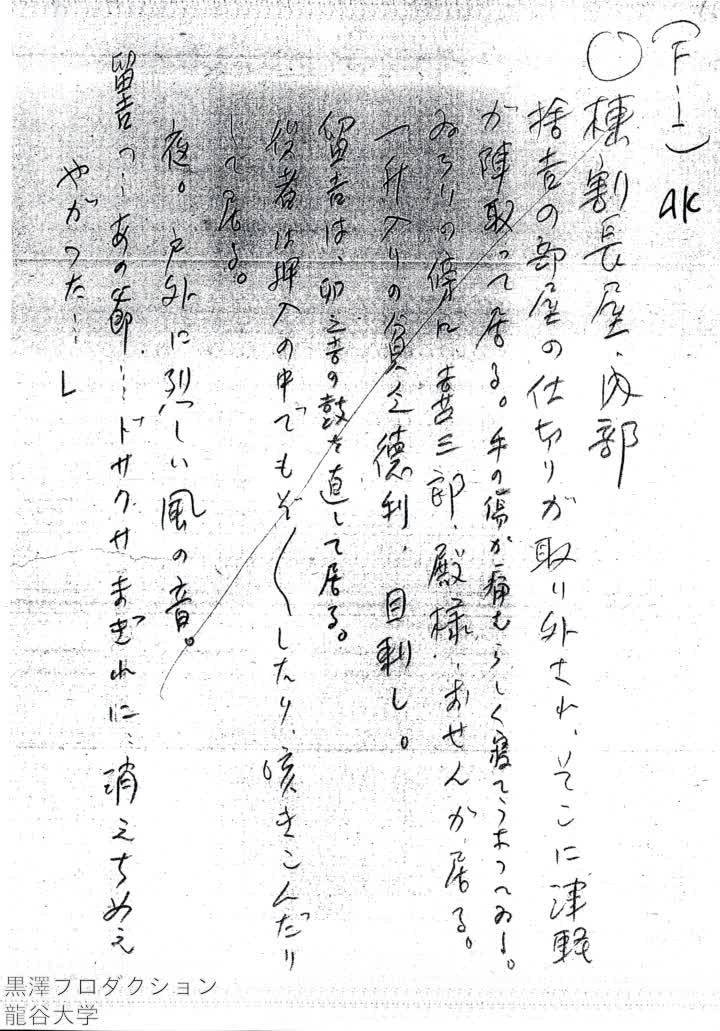 (F・I)
AK
○棟割長屋・内部
捨吉の部屋の仕切りが取り外され、そこに津軽
が陣取って居る。手の傷が痛むらしく寝て
ゐろりの傍に喜三郎、殿様、おせんが居る。
一升入りの貧乏徳利、目刺し。
留吉は、卯之吉の鼓を直して居る。
役者は押入の中でもぞ〳〵したり、咳きこんだり
して居る。
夜。戸外に烈しい風の音。
留吉「…あの爺…ドサクサまぎれに…消えちめえ
やがつた…」
黒澤プロダクション
龍谷大学